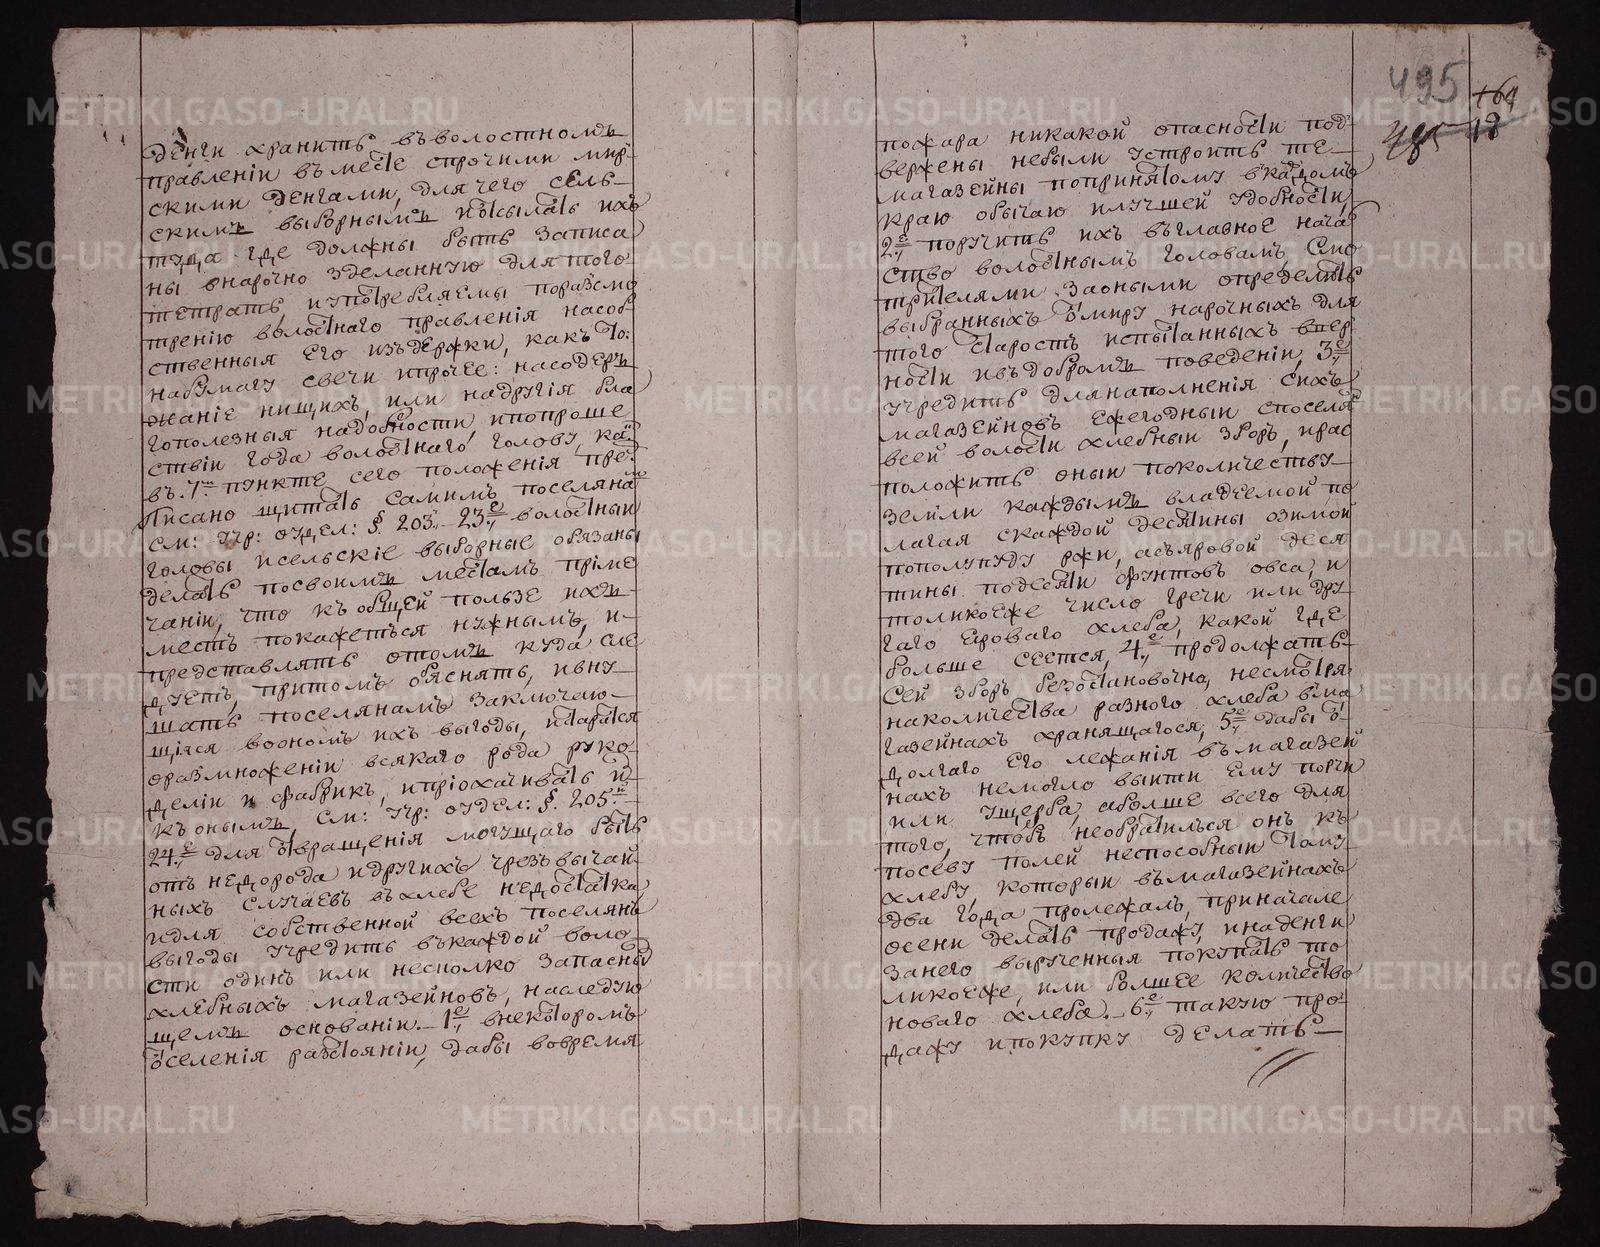 денги хранить въволостномъ
правленіи въместе спрочими мир-
скими денгами, для чего сель-
скимъ выборнымъ посылать ихъ
туда где должны быть записа
ны внарочно зделанную для того
тетрать, иупотребляемы поразсмо
трению волостнаго правленія насоб
ственныя его издержки, какъ то:
набумагу свечи ипрочее: насодер
жаніе нищихъ, или надругія бла
гополезныя надобности, ипопроше
ствіи года волостнаго голову, ка
въ 7м пункте сего положенія пре
писано щитать самимъ поселяна
см: учр: отдел: § 203. 23е волостныи
головы исельскіе выборные обязаны
делать посвоимъ местамъ приме
чаніи, что къ общей пользе ихъ
месть покажеться нужнымъ, и
представлять отомъ куда сле
дуетъ, притомъ объяснять, ивну
шать поселянамъ заключаю-
щіяся вооономъ ихъ выгоды, истарatся
оразмноженіи всякаго рода руко
деліи и фабрикъ, ипріохачивать й
къ онымъ, см: учр: отдел: §. 205.й
24.е для отвращенія могущаго быть
отъ недорода идругихъ чрезвычай
ныхъ случаевъ въхлебе недостатка
идля собственной всехъ поселянъ
выгоды учредить въкаждой воло
сти одинъ или несколко запасны
хлебныхъ магазейновъ, наследую
щемъ основаніи. 1е внекоторомъ
отселенія разстояніи, дабы вовремя
495
+64
485 18
пожара никакой опасности под-
вержены небыли устроить те-
магазейны попринятому вкаждомъ
краю обычаю илучшей удобности,
2е поручить ихъ въглавное нача
ство волостнымъ головамъ, смо
трителями заоными определить
выбранныхъ отмиру нарочныхъ для
того старость испытанныхъввер
ности ивъдобромъ поведеніи, 3е
учредить длянаполненія сихъ
магазейновъ ежегодныи споселя
всей волости хлебныи зборъ, прас
положить оныи поколичеству
земли каждымъ владеемой по
лагая скаждой десятины озимой
пополупуду ржи, асъяровой деся
тины подесяти фунтовъ овса, и
толикоеже число гречи или дру
гаго яроваго хлеба, какой где
больше сеется, 4е продолжать-
сей зборъ безостановочно, несмотря
наколичества разного хлеба въма
газейнахъ хранящагося, 5е дабы от
долгаго его лежанія въмагазей
нахъ немогло выити ему порчи
или ущерба, аболше всего для
того, чтобъ необратилься онъ къ
посеву полей неспособныи тому
хлебу, которыи въмагазейнахъ
два года пролежалъ, приначале
осени делать продажу, инаденги
занего вырученныя покупать то
ликоеже, или болшее количество
новаго хлеба. 6е такую про
дажу ипокупку делать